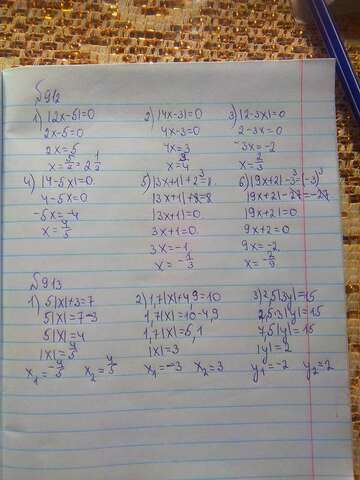 №912
1) |2x-5|=0
2x-5=0
2x=5
x=5/2=2 1/2
2) |4x-3|=0
4x-3=0
4x=3
x=3/4
3) |2-3x|=0
2-3x=0
-3x=-2
x=2/3
4) |4-5x|=0
4-5x=0
-5x=-4
x=4/5
5) |3x+1|+2³=8
|3x+1|+8=8
|3x+1|=0
3x+1=0
3x=-1
x=-1/3
6) |9x+2|-3³=(-3)³
|9x+2|-27=-27
|9x+2|=0
9x+2=0
9x=-2
x=-2/9
№913
1) 5|x|+3=7
5|x|=7-3
5|x|=4
|x|=4/5
x₁=-4/5 x₂=4/5
2) 1,7|x|+4,9=10
1,7|x|=10-4,9
1,7|x|=5,1
|x|=3
x₁=-3 x₂=3
3) 2,5|3y|=15
2,5·3|y|=15
7,5|y|=15
|y|=2
y₁=-2 y₂=2